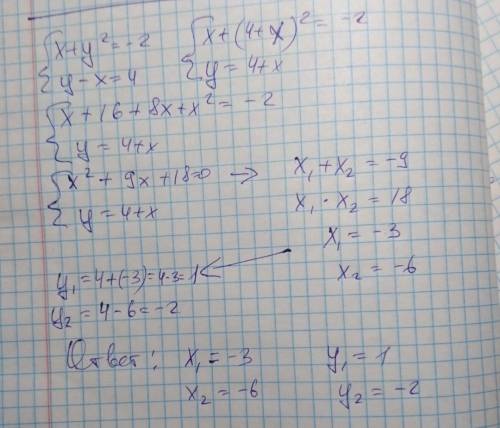 {x+y²=-2 {x+(4+x)²=-2
{y-x=4 {y=4+x
{x+16+8x+x²=-2
{y=4+x
{x²+9x+18=0 → x₁+x₂=-9
{y=4+x x₁·x₂=18
x₁=-3
x₂=-6
y₁=4+(-3)=4-3=1
y₂=4-6=-2
Ответ: x₁=-3 y₁=1
x₂=-6 y₂=-2